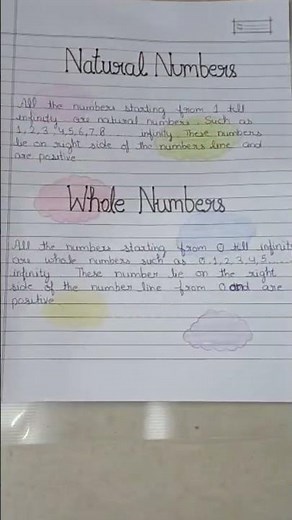 Natural Numbers
All the numbers starting from 1 till
infinity are natural numbers. Such as
1, 2, 3, 4, 5, 6, 7, 8 ...... infinity. These numbers
lie on right side of the numbers line and
are positive.
Whole Numbers
All the numbers starting from 0 till infinity
are whole numbers such as 0, 1, 2, 3, 4, 5......
infinity. These number lie on the right
side of the number line from 0 and are
positive.